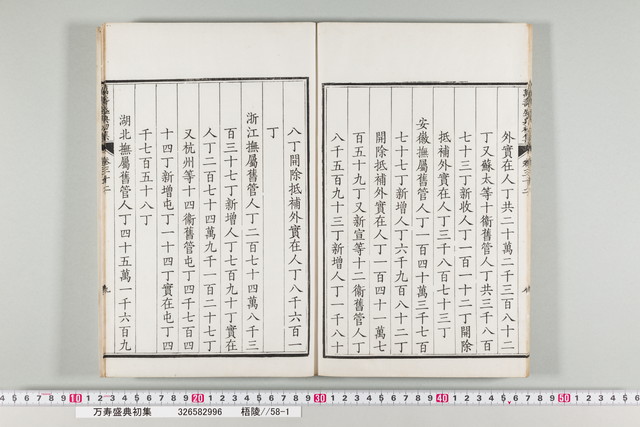 外實在人丁共二十萬二千三百八十二
丁又蘇太等十衞舊管人丁共三千八百
七十三丁新收人丁一百一十二丁開除
抵補外實在人丁三千八百七十三丁
安徽撫屬舊管人丁一百四十萬三千七百
七十七丁新增人丁六千九百八十二丁
開除抵補外實在人丁一百四十一萬七
百五十九丁又新宣等十二衞舊管人丁
八千五百九十三丁新增人丁一千八十
八丁開除抵補外實在人丁八千六百一
丁
浙江撫屬舊管人丁二百七十四萬八千三
百三十七丁新增人丁七百九十丁實在
人丁二百七十四萬九千一百二十七丁
又杭州等十四衞舊管屯丁四千七百四
十四丁新增屯丁一十四丁實在屯丁四
千七百五十八丁
湖北撫屬舊管人丁四十五萬一千六百九
卷三十二
九
10 20 30 40 50
万寿盛典初集 326582996 梧陵//58-1